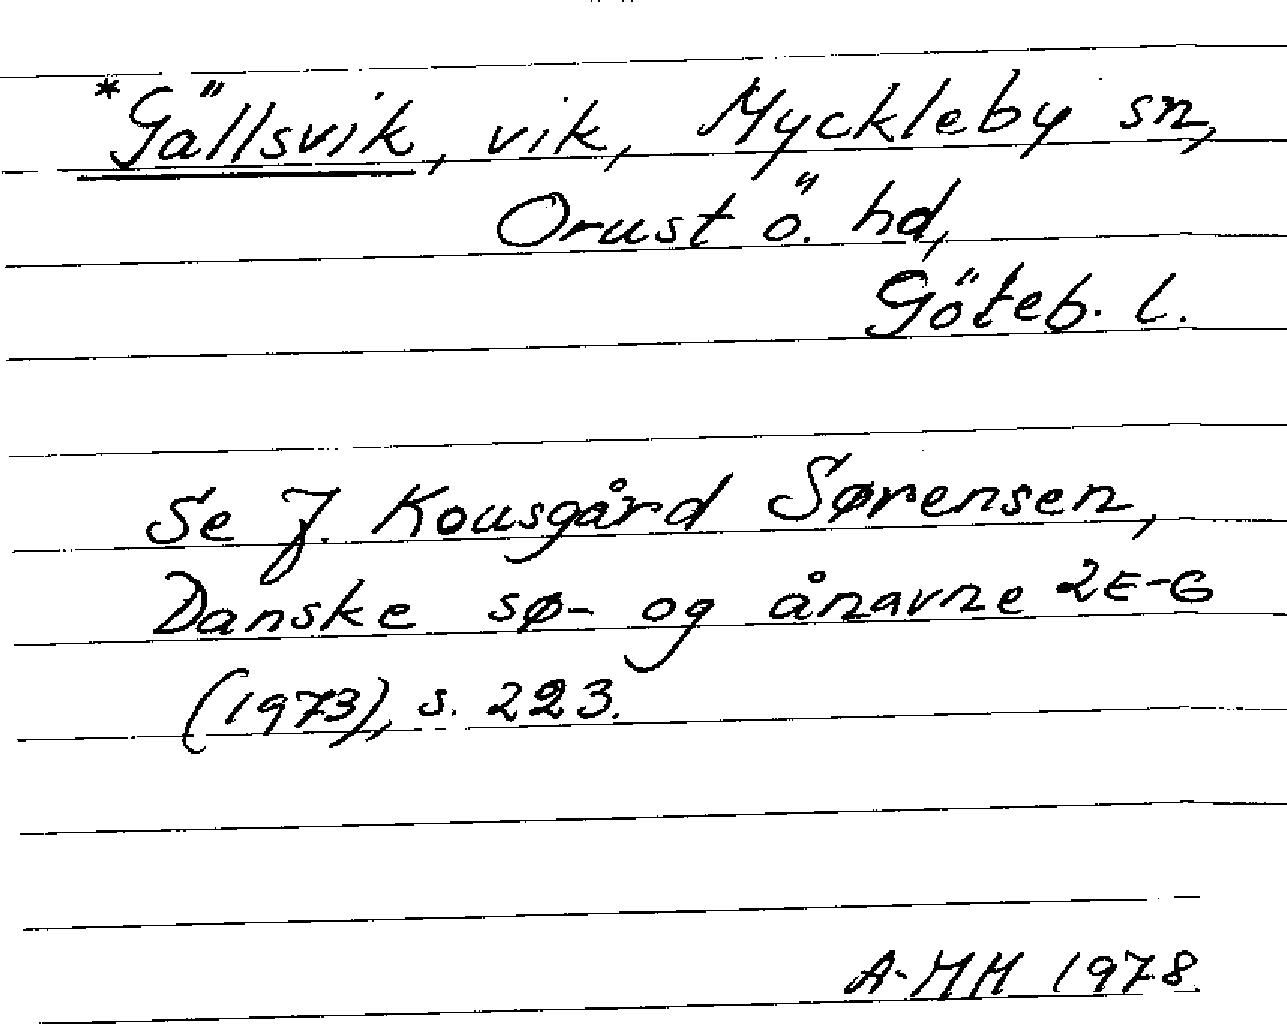 *Gällsvik, vik, Myckleby sn,
Orust ö. hd,
Göteb. l.
Se J. Kousgård Sørensen,
Danske sø- og ånavne 2E-G
(1973), s. 223.
A-MH 1978.